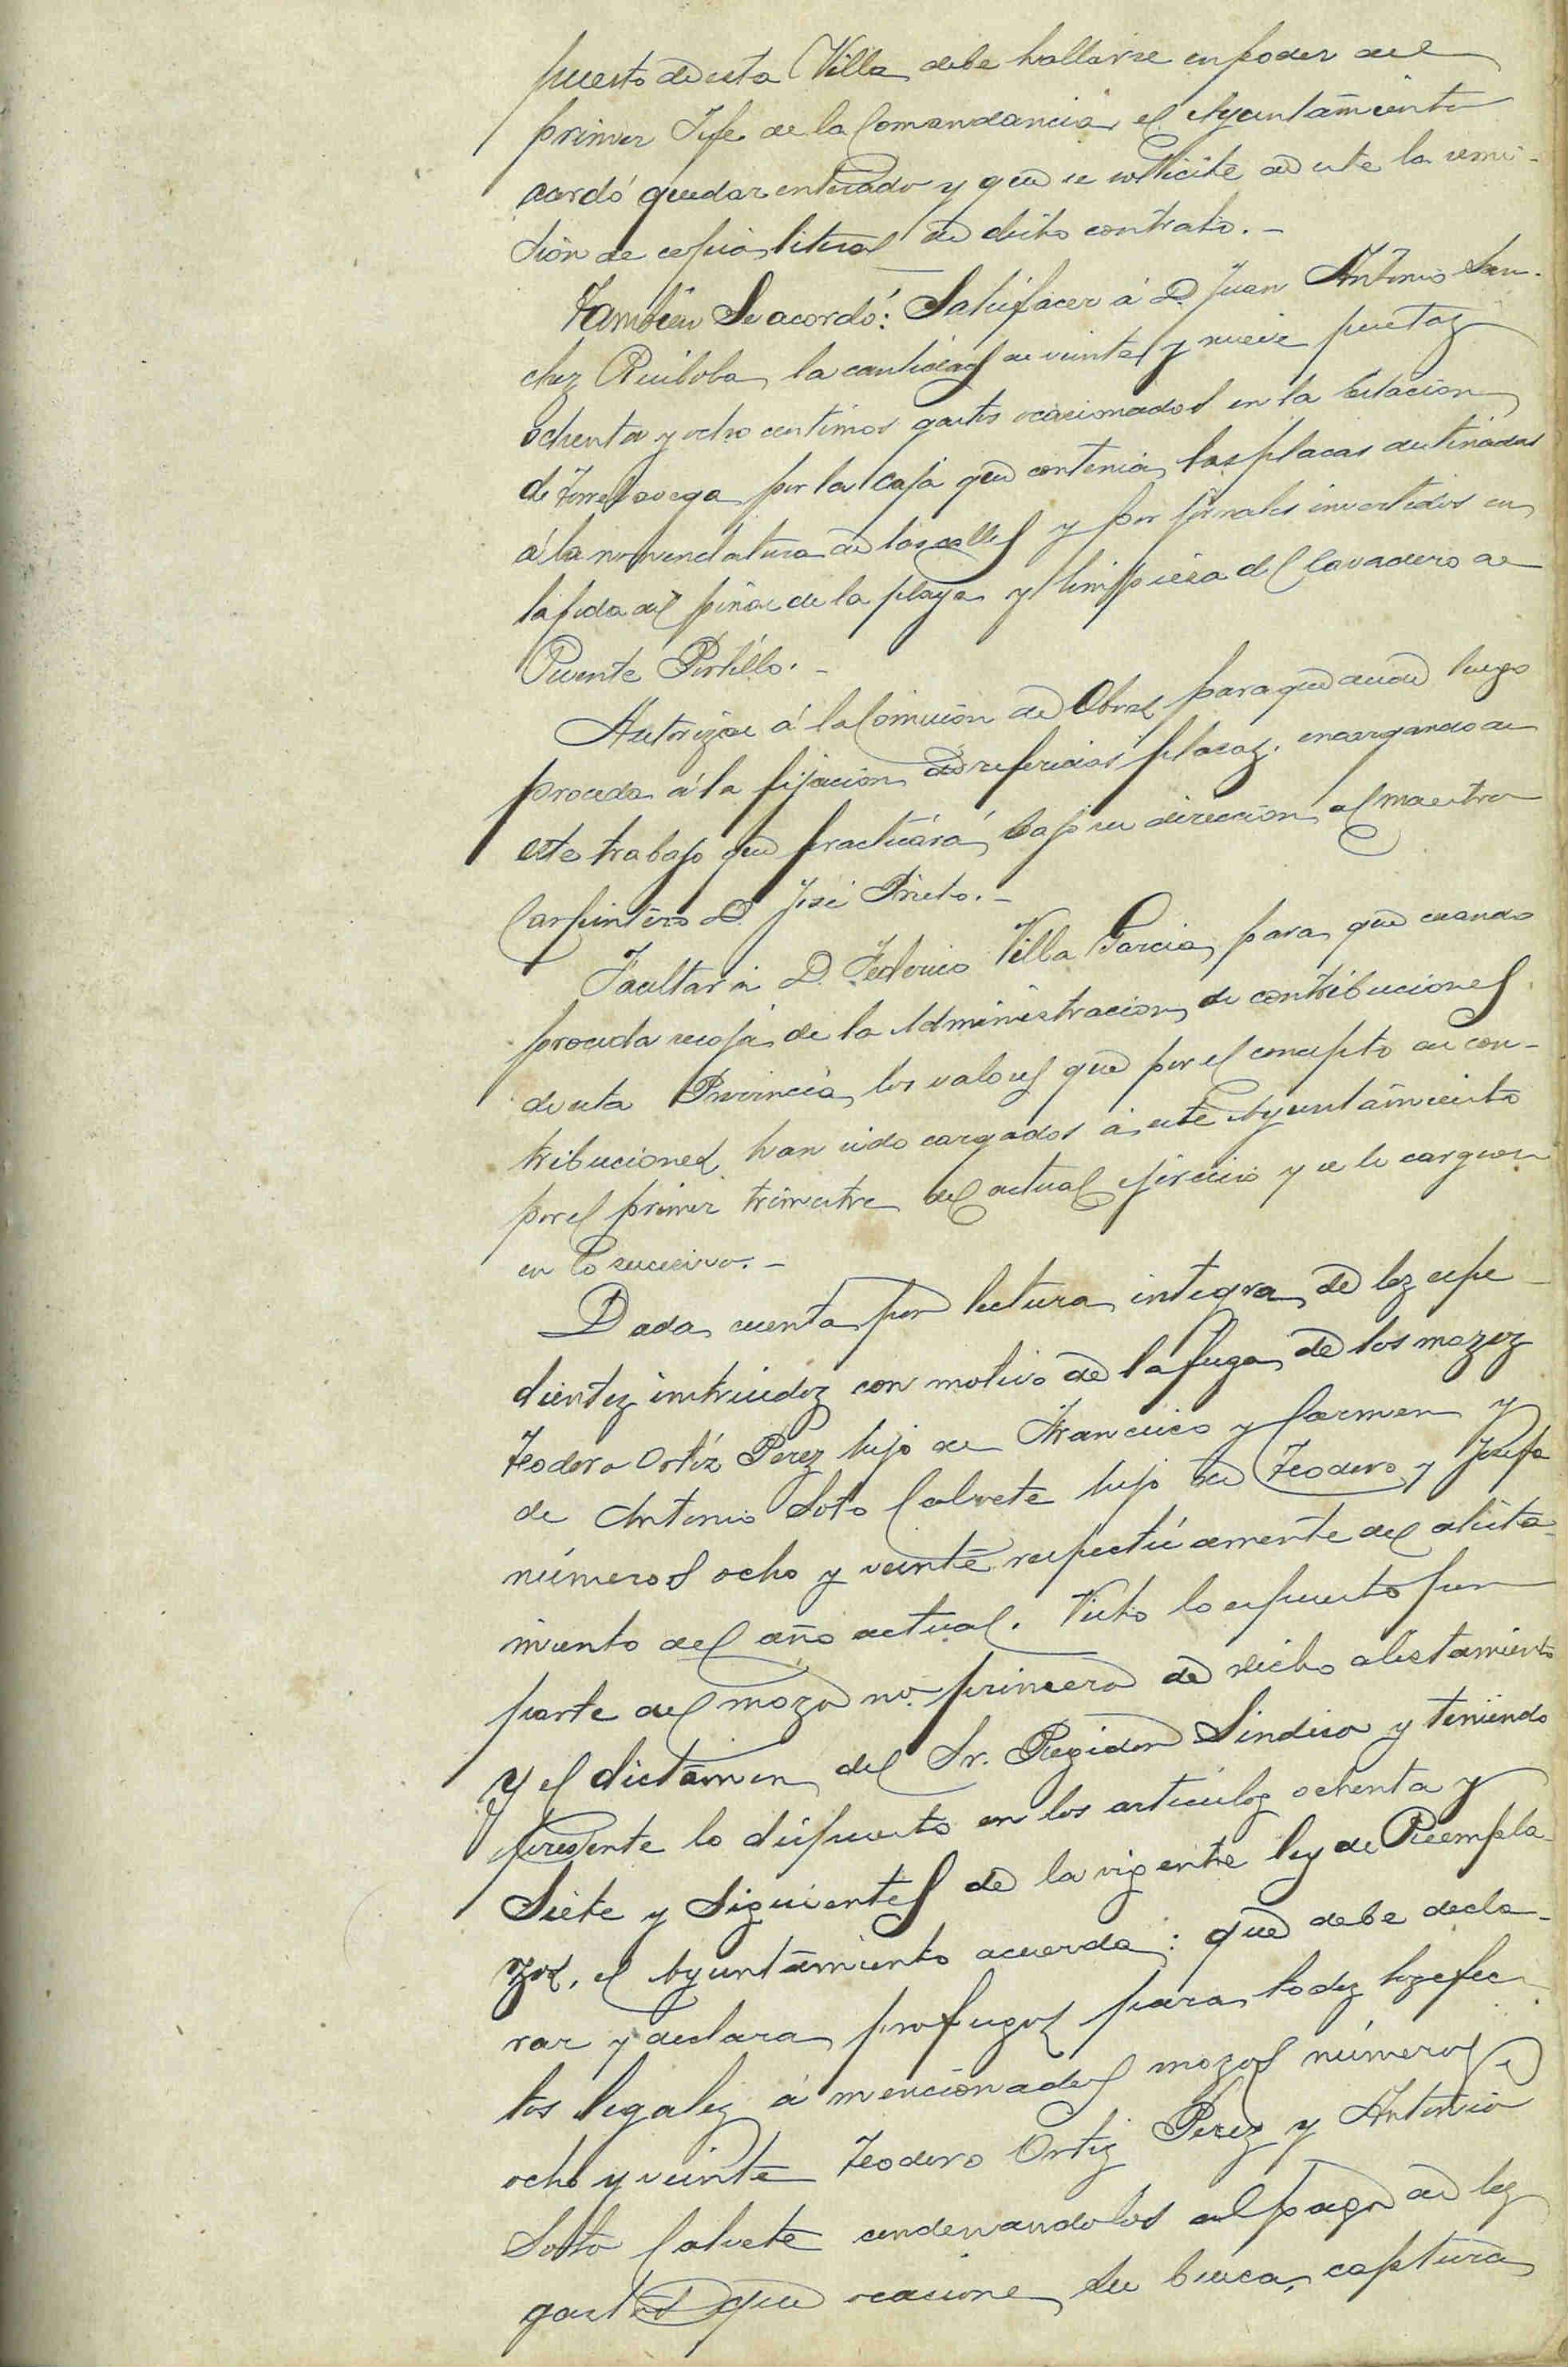 puesto de esta Villa debe hallarse en poder del
primer Jefe de la Comandancia, el Ayuntamiento
acordó quedar enterado y que se solicite de este la remi-
sión de copia literal de dicho contrato.-
También Se acordó: Satisfacer á D. Juan Antonio San-
chez Ruiloba la cantidad de veinte y nueve pesetas
ochenta y ocho centimos gastos ocasionados en la Estacion
de Torrelavega por la caja que contenia las placas destinadas
á la nomenclatura de las calles y por jornales invertidos en
la poda del pinar de la playa y limpieza del lavadero de
Puente Portillo.-
Autorizar á la Comisión de Obras para que desde luego
proceda á la fijación de referidas placas, encargando de
este trabajo que practicará bajo su dirección al maestro
Carpintero D. José Prieto.-
Facultar á D. Federico Villa Garcia, para que cuando
proceda recoja de la Administracion de contribuciones
de esta Provincia los valores que por el concepto de con-
tribuciones han sido cargados á este Ayuntamiento
por el primer trimestre del actual ejercicio y se le carguen
en lo sucesivo.-
Dada cuenta por lectura integra de los espe-
dientes instruidos con motivo de la fuga de los mozos
Teodoro Ortíz Pérez hijo de Francisco y Carmen y
de Antonio Soto Calvete hijo de Teodoro y Josefa
números ocho y veinte respectivamente del alista-
miento del año actual. Visto lo espuesto por
parte del mozo no. primero de dicho alistamiento
y el dictámen del Sr. Regidor Sindico y teniendo
presente lo dispuesto en los articulos ochenta y
Siete y Siguientes de la vigente ley de Reempla-
zos, el Ayuntamiento acuerda: que debe decla-
rar y declara profugos para todos los efec-
tos legales á mencionados mozos números
ocho y veinte Teodoro Ortiz Perez y Antonio
Soto Calvete condenandolos al pago de los
gastos que ocasione su busca, captura